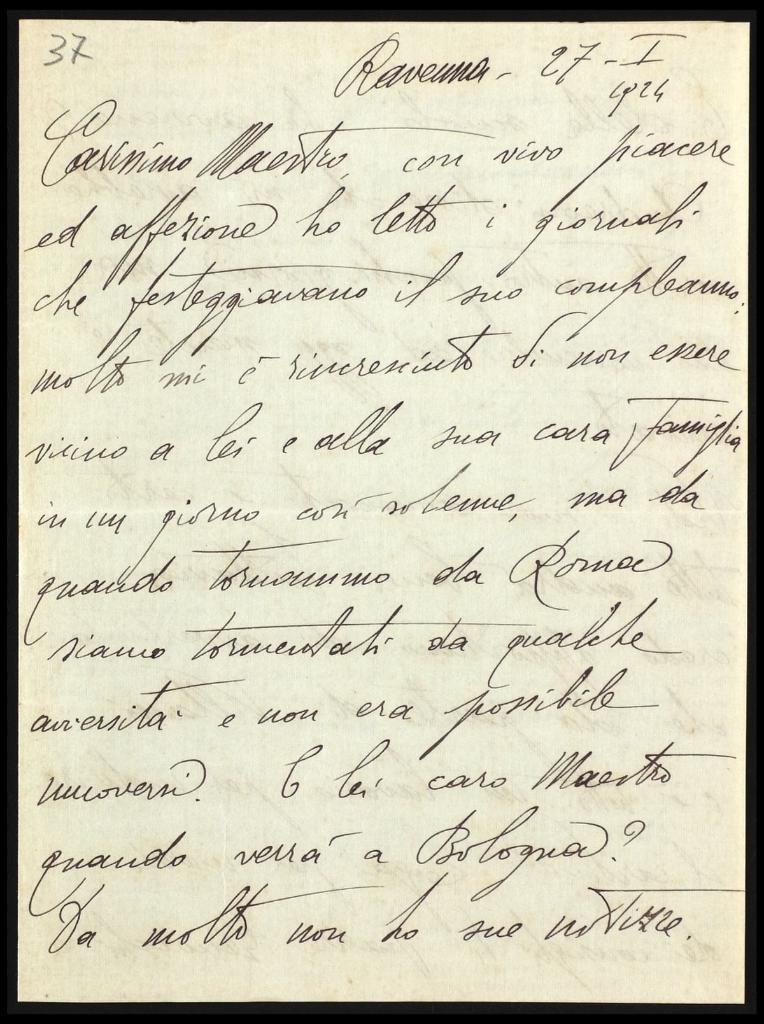 37
Ravenna - 27 - I
1924
Carissimo Maestro, con vivo piacere
ed affezione ho letto i giornali
che festeggiavano il suo compleanno;
molto mi è rincresciuto di non essere
vicino a lei e alla sua cara famiglia
in un giorno così solenne, ma da
quando tornammo da Roma
siamo tormentati da qualche
avversità e non era possibile
muoversi. E lei caro Maestro
quando verrà a Bologna?
Da molto non ho sue notizze.